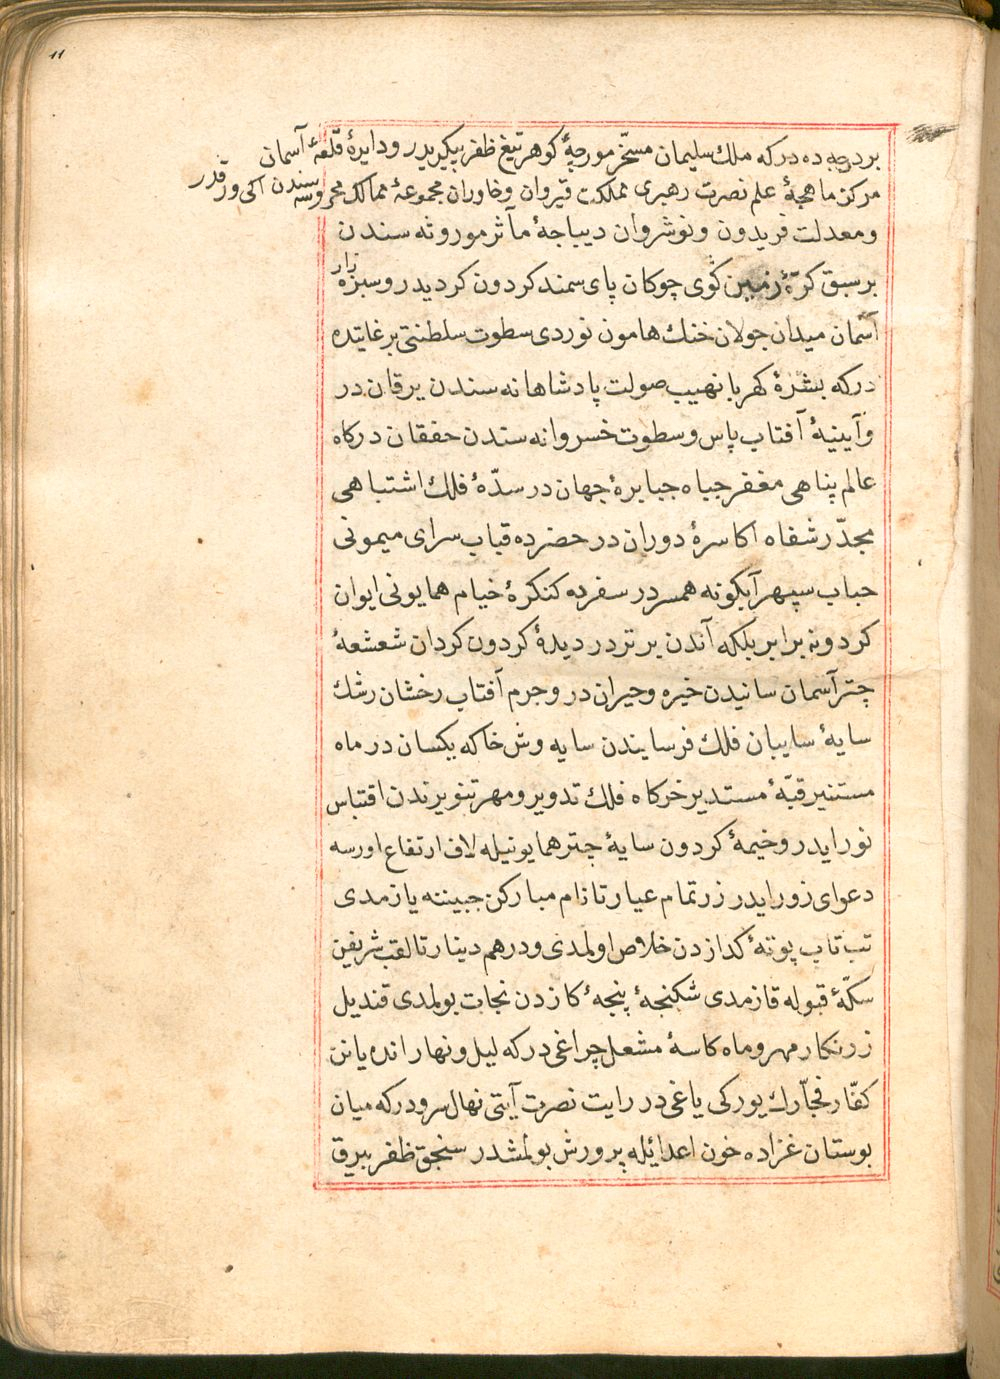 ١١
بر درجه ده در که ملك سلیمان مسخّر مورچۀ کوهر تیغ ظفر پیکریدر و دایرۀ قلعۀ آسمان
مرکز ماهچۀ علم نصرت رهبری مملکت قیروان و خاوران مجموعۀ ممالك محروسه سندن اکی ورقدر
و معدلت فریدون و نوشروان دیباجۀ مآثر موروثه سندن
بر سبق کرّۀ زمین کوی چوکان پای سمند کردون کردیدر و سبزه زار
آسمان میدان جولان خنك هامون نوردی سطوت سلطنتی بر غایتده
در که بشرۀ کهربا نهیب صولت پادشاهانه سندن یرقان در
و آیینۀ آفتاب پاس و سطوت خسروانه سندن خفقان درکاه
عالم پناهی مغفر جباه جبابرۀ جهان در سدّۀ فلك اشتباهی
مجدّر شفاه اکاسرۀ دوران در حضرده قباب سرای میمونی
حباب سپهر آبکونه همسر در سفرده کنکرۀ خیام همایونی ایوان
کردونه برابر بلکه آندن برتر در دیدۀ کردون کردان شعشعۀ
چتر آسمان سانیدن خیره و حیران در و جرم آفتاب رخشان رشك
سایۀ سایبان فلك فرسایندن سایه وش خاکه یکسان در ماه
مستنیر قبّۀ مستدیر خرکاه فلك تدویر و مهر تنویرندن اقتباس
نور ایدر و خیمۀ کردون سایۀ چتر همایونیله لاف ارتفاع اورسه
دعوای زور ایدر زر تمام عیار تا نام مبارکن جبیننه یازمدی
تب تاب پوتۀ کدازدن خلاص اولمدی و درهم دینار تا لقب شریفن
سکّۀ قبوله قازمدی شکنجۀ پنجۀ کازدن نجات بولمدی قندیل
زرنکار مهر و ماه کاسۀ مشعل چراغی در که لیل و نهار انده یانن
کفّار فجّارك یورکی یاغی در رایت نصرت آیتی نهال سرو در که میان
بوستان غزاده خون اعدائیله پرورش بولمشدر سنجق ظفر بیرق